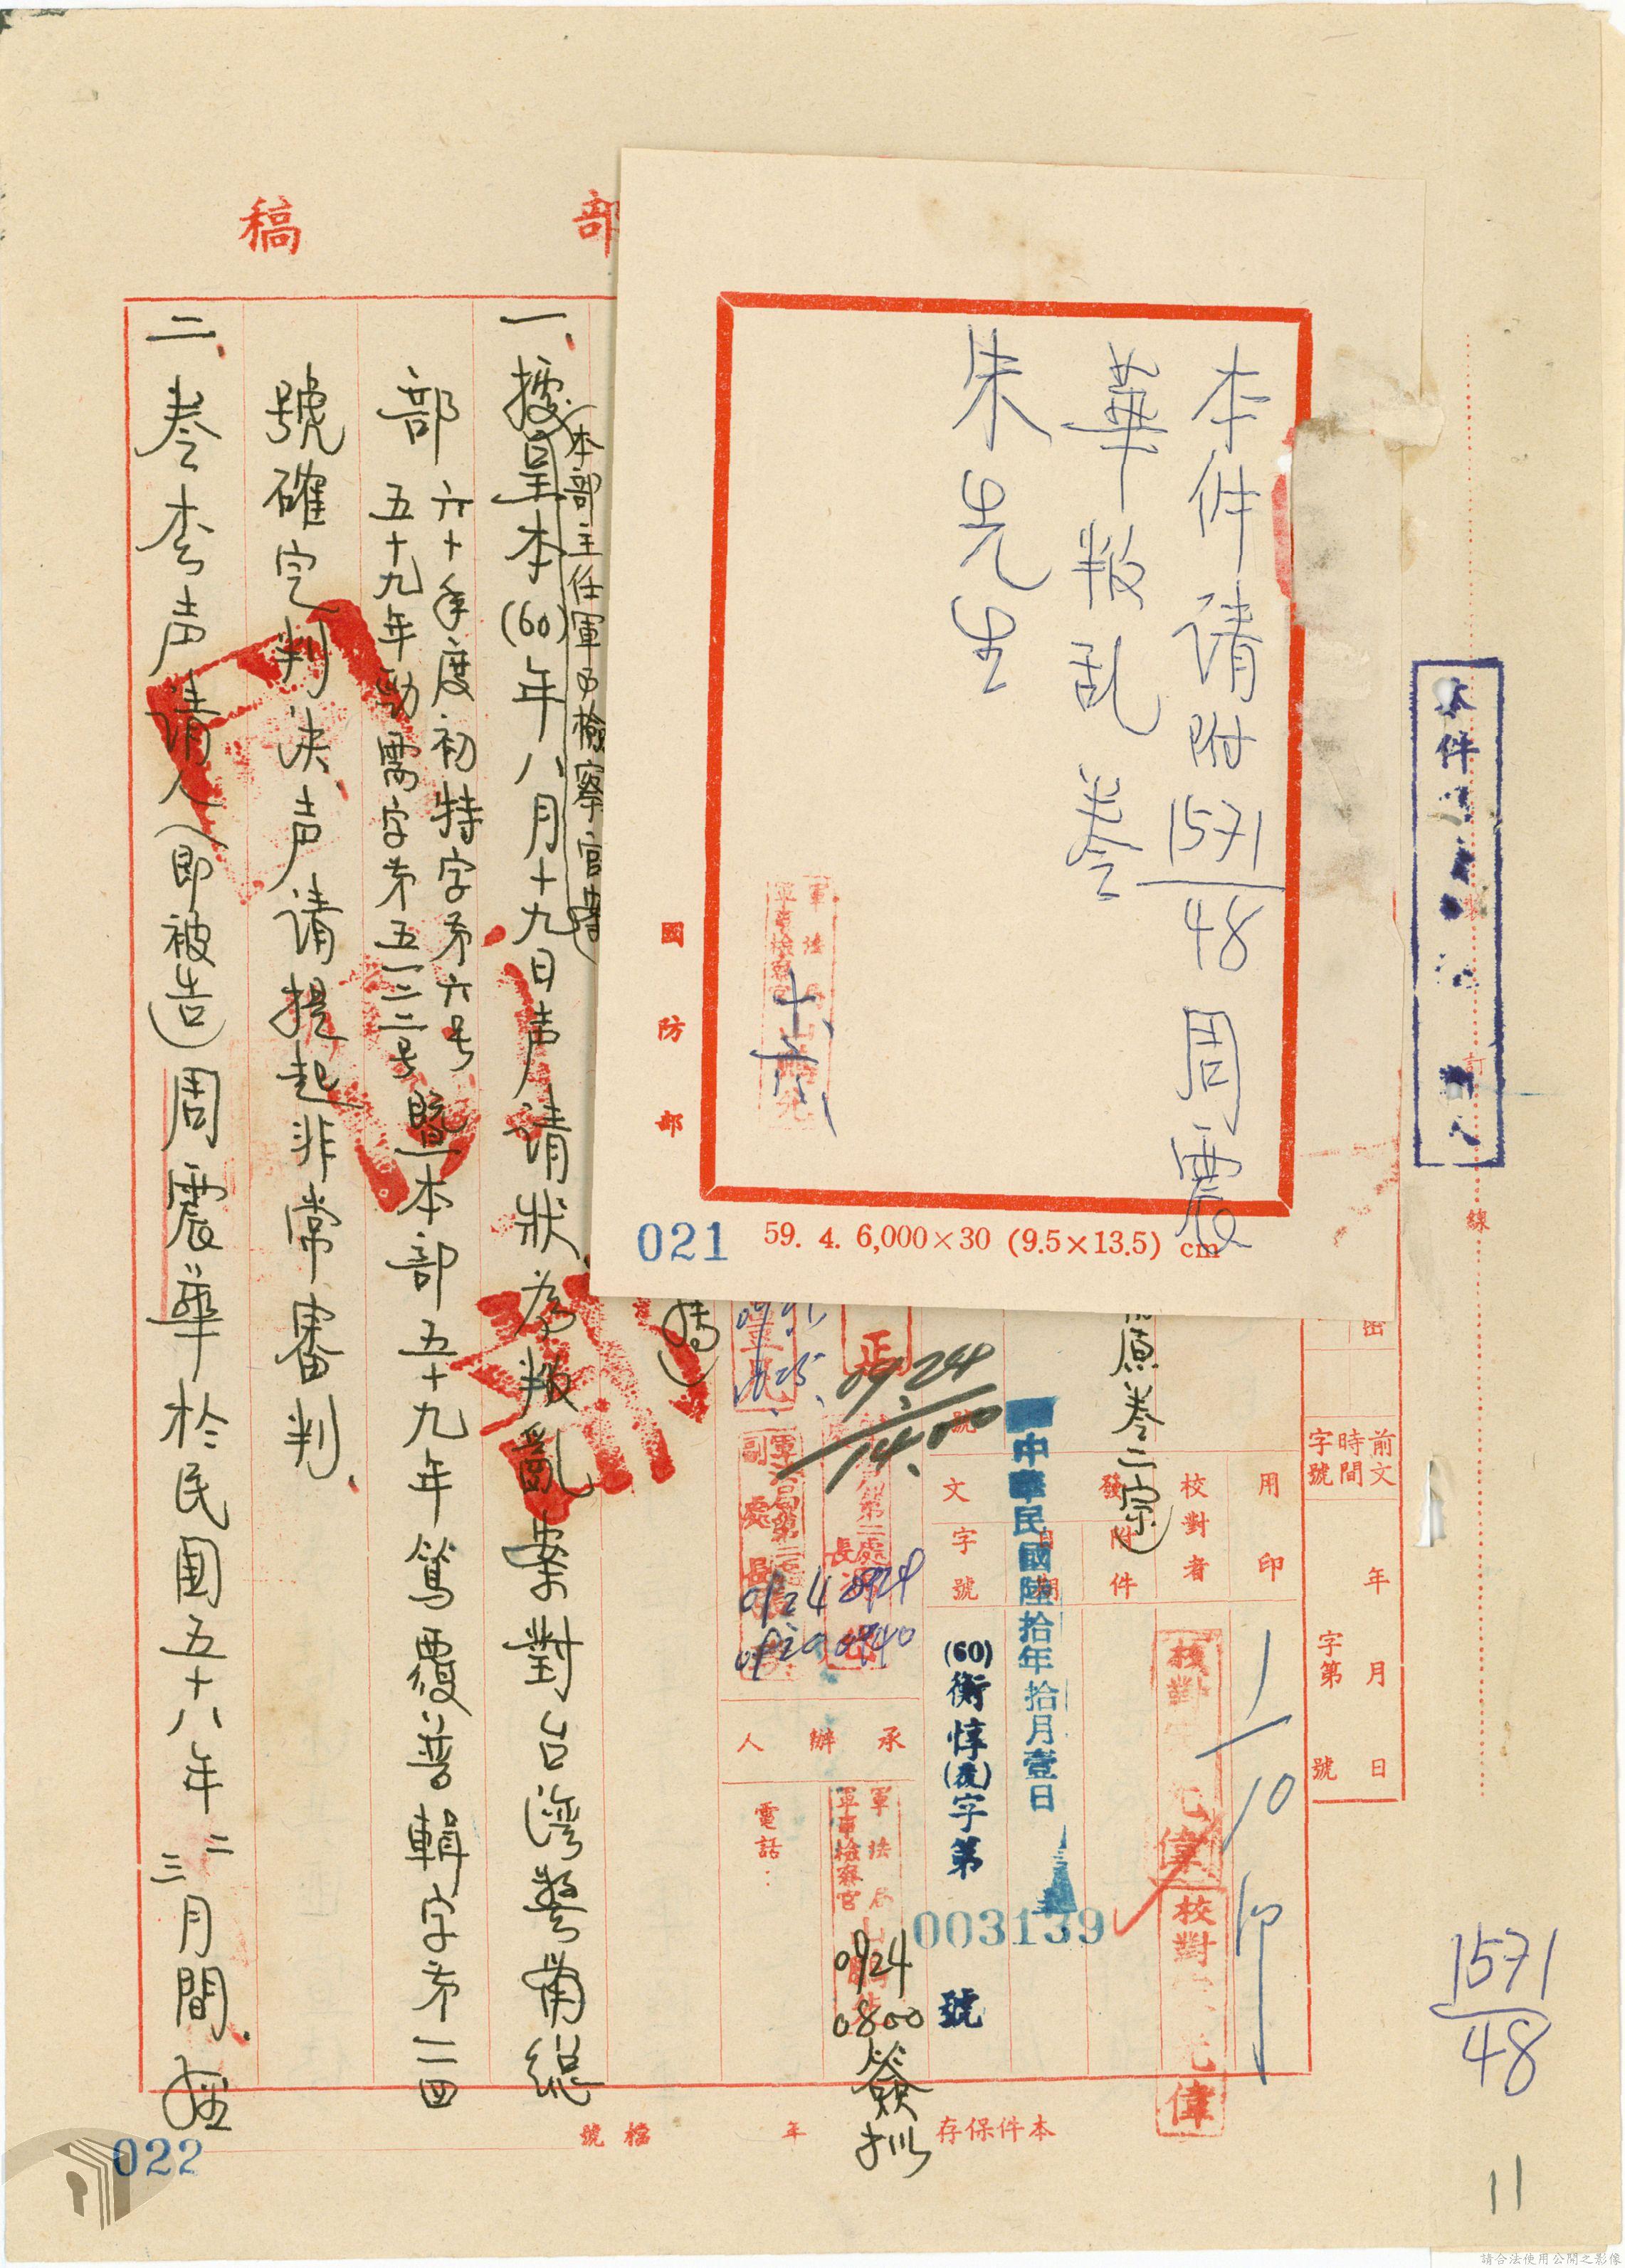 本件请附1571/48周震
華叛乱卷
朱先生
軍法局
軍事檢察官
十、六、
國防部
021
59. 4. 6,000×30 (9.5×13.5) cm
部
稿
本件
訂
線
密
前文
時間
字號
年月日
字第號
原卷二宗)
用印
校對者
發
附件
文
字號
號
1/10
校對
偉
校對
偉
中華民國陸拾年拾月壹日
(60)衡惇(嚴)字第003139號
正
09.24
14.00
軍法局第二處
副處長
第二處
長
0924
0940
承辦人
電話：
軍法局
軍事檢察官
0924
0800
簽擬
本部主任軍事檢察官
一、據呈本(60)年八月十九日声请狀為叛亂案對台灣警備總
部六十年度初特字第六号
五十九年勁需字第五一三二号暨本部五十九年篤覆普輯字第二四
號確定判决、声请提起非常審判、
二、卷查声请人(即被告)周震華於民國五十八年二
三月間、經
本件保存
年
檔號
022
1571/48
11
請合法使用公開之影像